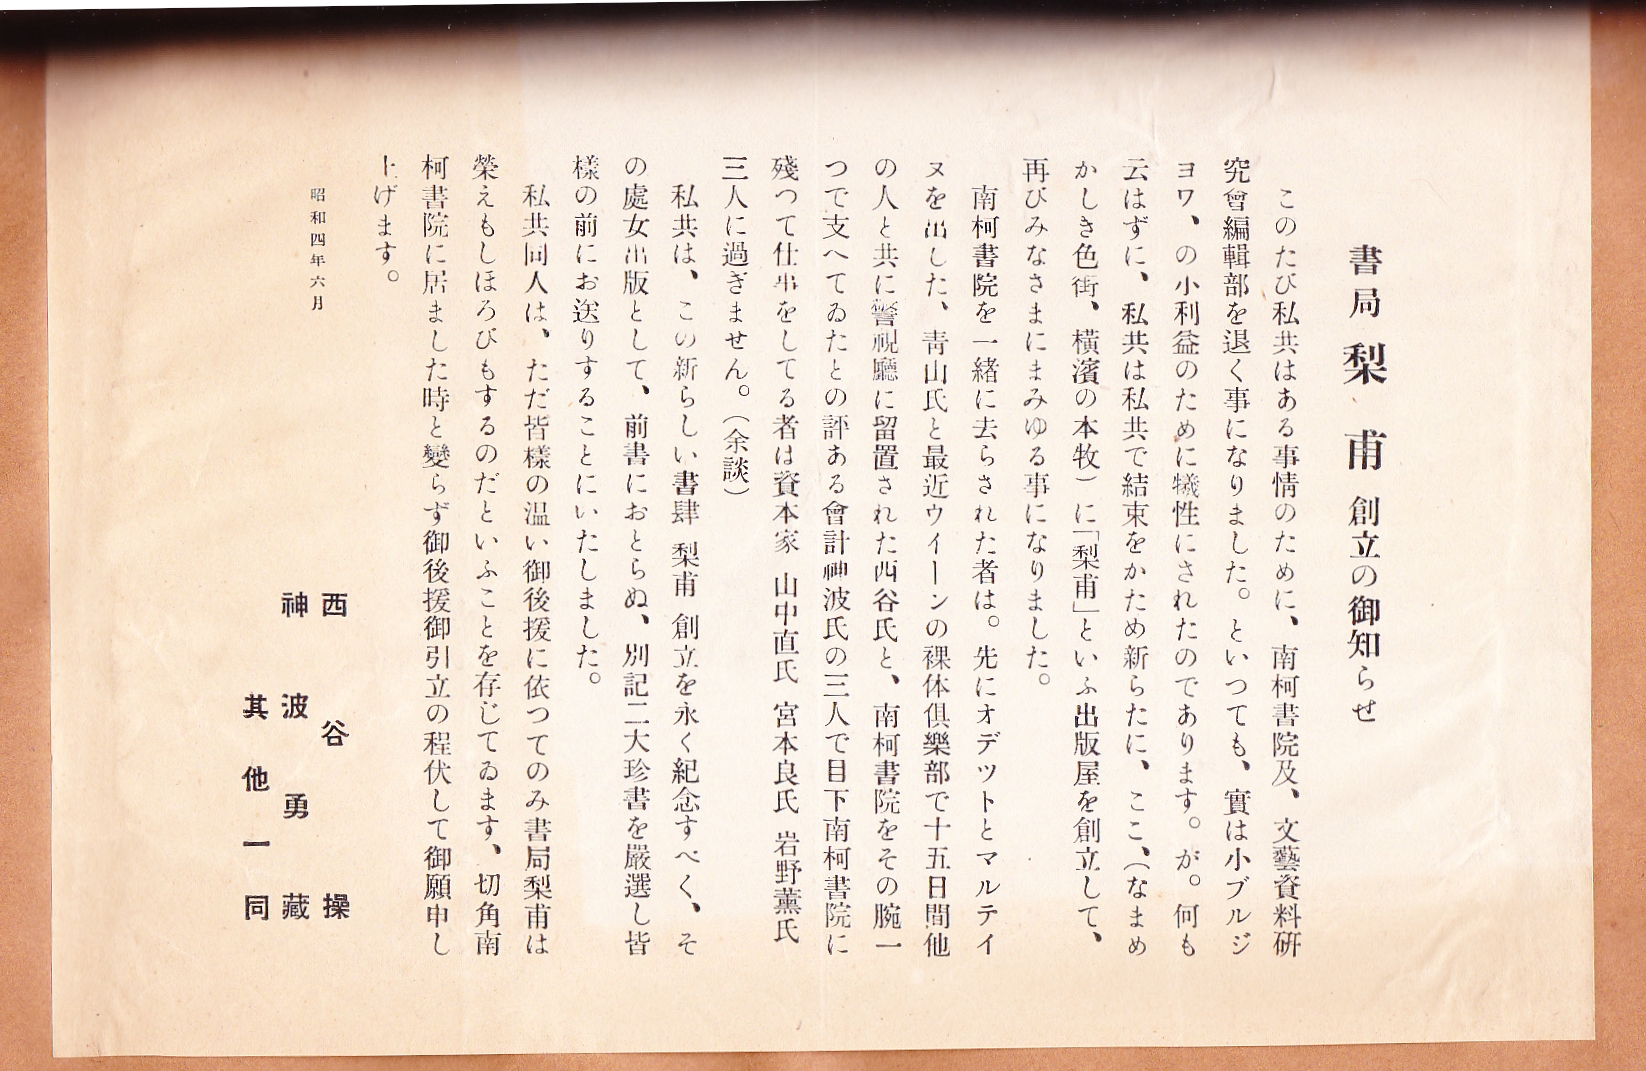 書局 梨甫 創立の御知らせ
このたび私共はある事情のために、南柯書院及、文藝資料研
究會編輯部を退く事になりました。といつても、實は小ブルジ
ヨワ、の小利益のために犧性にされたのであります。が。何も
云はずに、私共は私共で結束をかため新らたに、ここ、(なまめ
かしき色街、横濱の本牧)に「梨甫」といふ出版屋を創立して、
再びみなさまにまみゆる事になりました。
南柯書院を一緒に去らされた者は。先にオデツトとマルテイ
ヌを出した、靑山氏と最近ウイーンの裸体倶樂部で十五日間他
の人と共に警視廳に留置された西谷氏と、南柯書院をその腕一
つで支へてゐたとの評ある會計神波氏の三人で目下南柯書院に
殘つて仕事をしてる者は資本家 山中直氏 宮本良氏 岩野薫氏
三人に過ぎません。(余談)
私共は、この新らしい書肆 梨甫 創立を永く紀念すべく、そ
の處女出版として、前書におとらぬ、別記二大珍書を嚴選し皆
樣の前にお送りすることにいたしました。
私共同人は、ただ皆樣の温い御後援に依つてのみ書局梨甫は
榮えもしほろびもするのだといふことを存じてゐます、切角南
柯書院に居ました時と變らず御後援御引立の程伏して御願申し
上げます。
昭和四年六月
西谷操
神波勇藏
其他一同